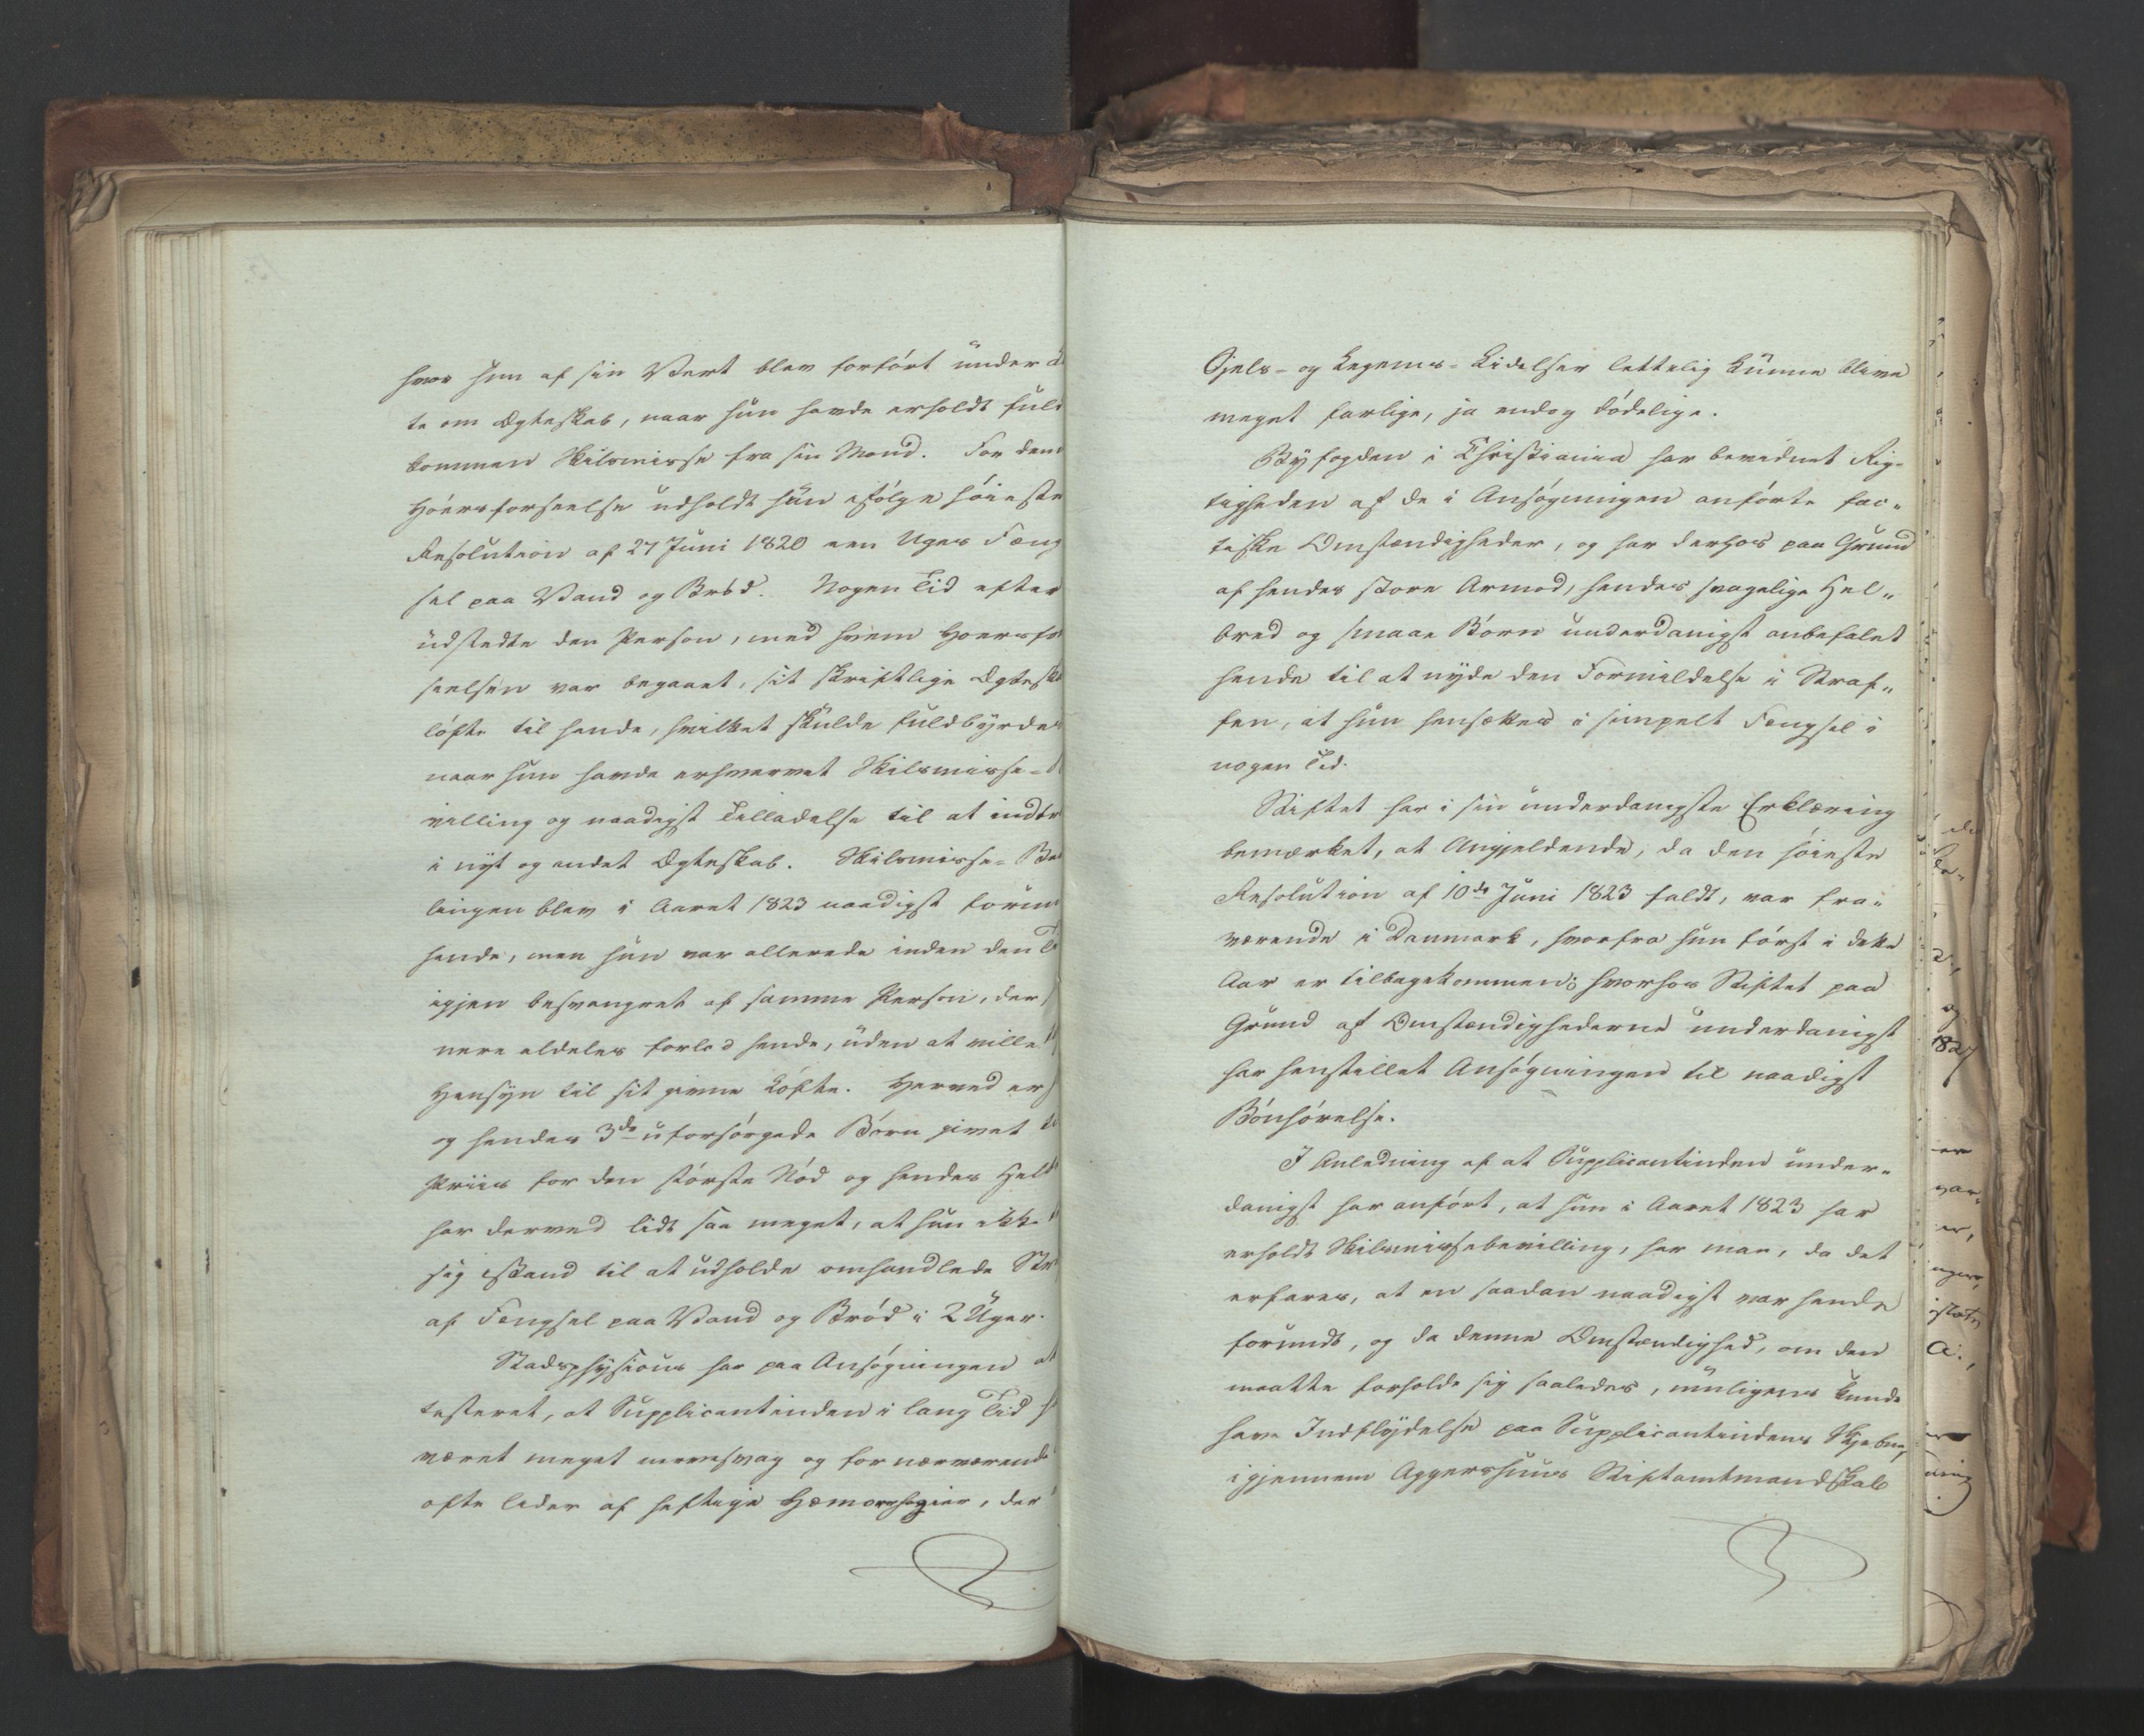 hvor hun af sin Vert blev forført under
te om Ægteskab, naar hun havde erholdt fuld
kommen Skilsmisse fra sin Mand. For denne
Hoersforseelse udholdt hun ifølge høieste
Resolution af 27 Juni 1820 een Uges Fæng
sel paa Vand og Brød. Nogen Tid efter
udstedte den Person, med hvem Hoersfor
seelsen var begaaet, sit skriftlige Ægteska
løfte til hende, hvilket skulde fuldbyrdes
naar hun havde erhvervet Skilsmisse-
villing og naadigst Tilladelse til at indtr
i nyt og andet Ægteskab. Skilsmisse-Be
lingen blev i Aaret 1823 naadigst forun
hende, men hun var allerede inden den Ti
igjen besvangret af samme Person, der
nere aldeles forlod hende, uden at ville
Hensyn til sit givne Løfte. Herved er
og hendes 3de uforsørgede Børn givet
Priis for den største Nød og hendes Hel
har derved lidt saa meget, at hun ikke
sig istand til at udholde omhandlede Str
af Fængsel paa Vand og Brød i 2 Uger.
Stadsphysicus har paa Ansøgningen at
testeret, at Supplicantinden i lang Tid
været meget nervesvag og for nærværende
ofte lider af heftige Hæmorrhagier, der
Sjels- og Legems-Lidelser lettelig kunne blive
meget farlige, ja endog dødelige.
Byfogden i Christiania har bevidnet Rig-
tigheden af de i Ansøgningen anførte fac-
tiske Omstændigheder, og har derhos paa Grund
af hendes store Armod, hendes svagelige Hel-
bred og smaae Børn underdanigst anbefalet
hende til at nyde den Formildelse i Straf-
fen, at hun hensættes i simpelt Fængsel i
nogen Tid.
Stiftet har i sin underdanigste Erklæring
bemærket, at Angjeldende, da den høieste
Resolution af 10de Juni 1823 faldt, var fra-
værende i Danmark, hvorfra hun først i dette
Aar er tilbagekommen; hvorhos Stiftet paa
Grund af Omstændighederne underdanigst
har henstillet Ansøgningen til naadigst
Bønhørelse.
I Anledning af at Supplicantinden under-
danigst har anført, at hun i Aaret 1823 har
erholdt Skilsmissebevilling, har man, da det
erfares, at en saadan naadigst var hende
forundt, og da denne Omstændighed, om den
maatte forholde sig saaledes, muligens kunde
have Indflydelse paa Supplicantindens Skjebne,
igjennem Aggershuus Stiftamtmandskab
1827